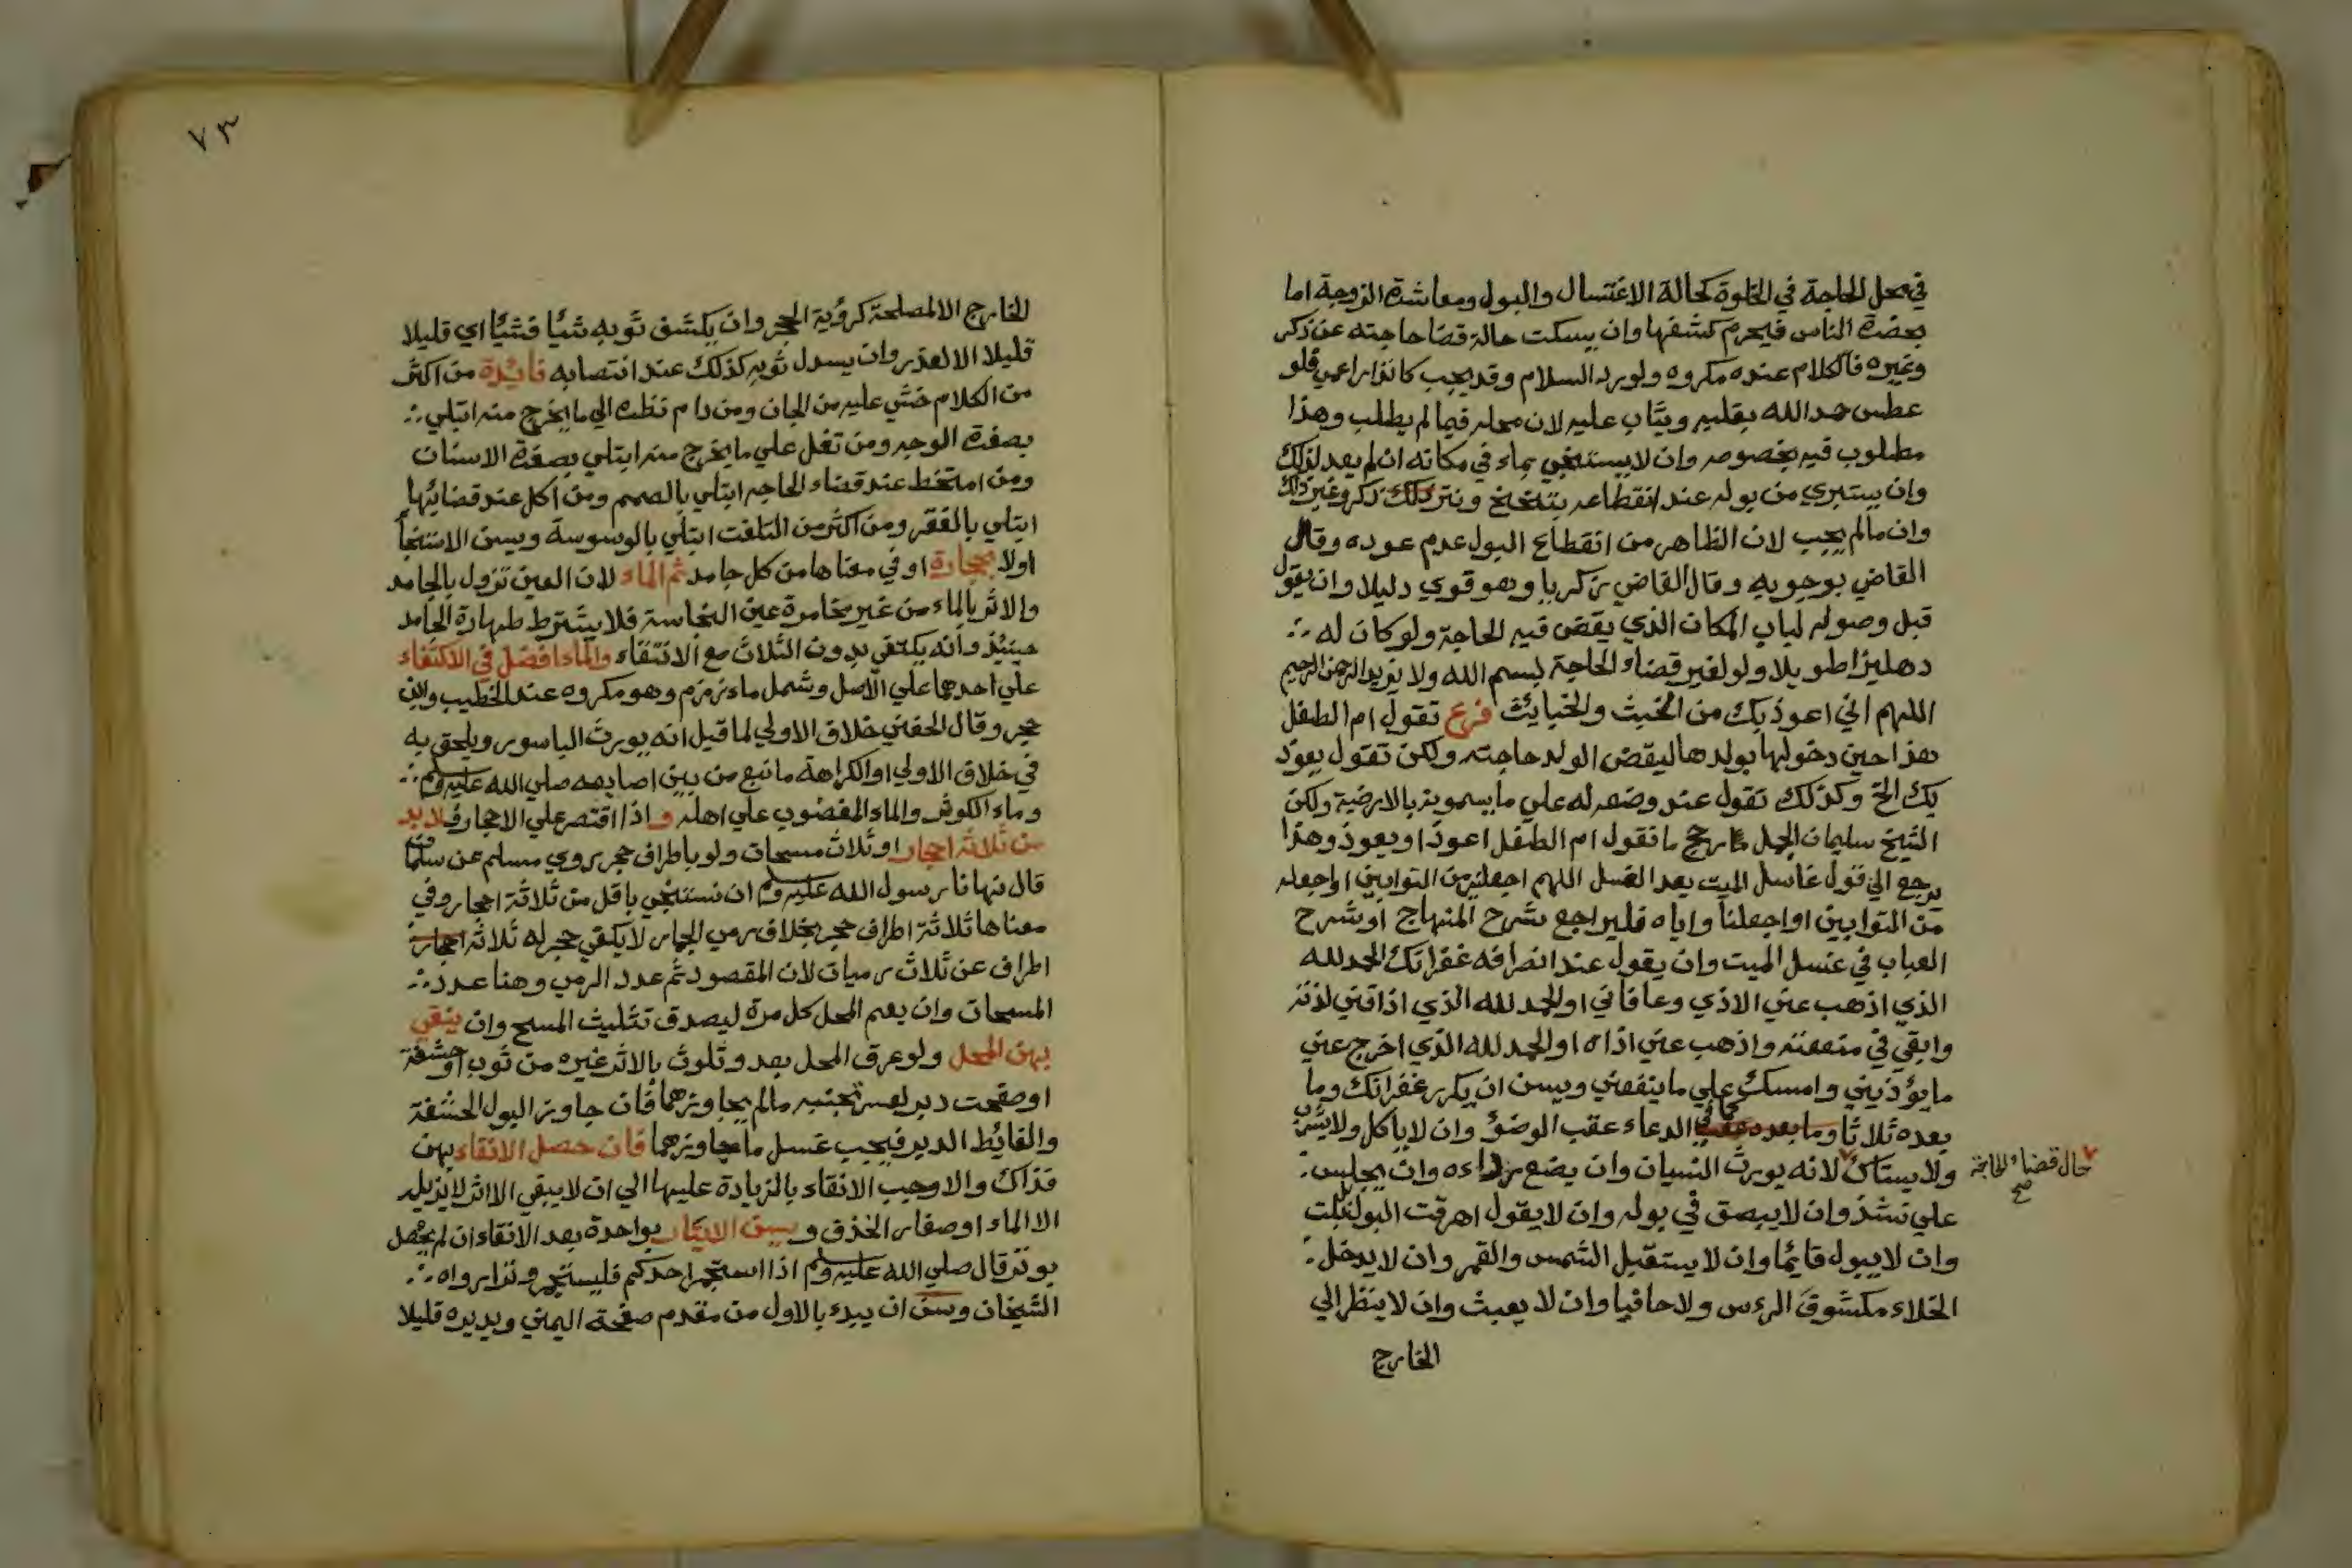 في محل الحاجة في الخلوة كحالة الاغتسال والبول ومعاشرة الزوجة اما
بحضرة الناس فيحرم كشفها وان يسكت حالة قضا حاجته عن ذكر
وغيره فالكلام عنده مكروه ولو برد السلام وقد يجب كانذار اعمي فلو
عطس حمد الله بقلبه ويثاب عليه لان محله فيما لم يطلب وهذا
مطلوب فيه بخصوصه وان لا يستنجي بماء في مكانه ان لم يعد لذلك
وان يستبري من بوله عند انقطاعه بتنحنح ونتر ذكر وغير ذلك
وان مالم يجب لان الظاهر من انقطاع البول عدم عوده وقال
القاضي بوجوبه وقال القاضي زكريا وهو قوي دليلا وان يقول
قبل وصوله لباب المكان الذي يقضي فيه الحاجة ولو كان له
دهليزا طويلا ولو لغير قضاء الحاجة بسم الله ولا يزيد الرحمن الرحيم
اللهم اني اعوذ بك من الخبث والخبايث فرع تقول ام الطفل
هذا حين دخولها بولدها ليقضي الولد حاجته ولكن تقول يعوذ
بك الخ وكذلك تقول عند وضعه له علي ما يسمونه بالارضية ولكن
الشيخ سليمان الجمل رجح ما تقول ام الطفل اعوذ او يعوذ وهذا
يرجع الي قول غاسل الميت بعد الغسل اللهم اجعلني من التوابين او اجعله
من التوابين او اجعلنا واياه فليراجع شرح المنهاج او شرح
العباب في غسل الميت وان يقول عند انصرافه غفرانك الحمد لله
الذي اذهب عني الاذي وعافاني او الحمد لله الذي اذاقني لذته
وابقي في منفعته واذهب عني اذاه او الحمد لله الذي اخرج عني
ما يؤذيني وامسك علي ما ينفعني ويسن ان يكرر غفرانك وما
بعده ثلاثا كما في الدعاء عقب الوضؤ وان لا ياكل ولا يشرب
ولا يستاك لانه يورث النسيان وان يضع رداءه وان يجلس
حال قضاء الحاجة صح
علي نشذ وان لا يبصق في بوله وان لا يقول اهرقت البول بل بلت
وان لا يبول قايما وان لا يستقبل الشمس والقمر وان لا يدخل
الخلاء مكشوف الرءس ولا حافيا وان لا يعبث وان لا ينظر الي
الخارج
٧٣
الخارج الا لمصلحة كرؤية الحجر وان يكشف ثوبه شيًا فشيًا اي قليلا
قليلا الا لعذر وان يسدل ثوبه كذلك عند انتصابه فايدة من اكثر
من الكلام خشي عليه من الجان ومن دام نظره الي ما يخرج منه ابتلي
بصفرة الوجه ومن تفل علي ما يخرج منه ابتلي بصفرة الاسنان
ومن امتخط عند قضاء الحاجه ابتلي بالصمم ومن اكل عند قضائها
ابتلي بالفقر ومن اكثر من التلفت ابتلي بالوسوسة ويسن الاستنجأ
اولا بحجارة او في معناها من كل جامد ثم الماء لان العين تزول بالجامد
والاثر بالماء من غير مخامرة عين النجاسة فلا يشترط طهارة الجامد
حينئذ وأنه يكتفي بدون الثلاث مع الانتقاء والماء افضل في الاكتفاء
علي احدهما علي الاصل وشمل ماء زمزم وهو مكروه عند الخطيب وابن
حجر وقال الحفني خلاف الاولي لما قيل انه يورث الباسور ويلحق به
في خلاف الاولي او الكراهة ما نبع من بين اصابعه صلي الله عليه وسلم
وماء الكوثر والماء المغضوب علي اهله و اذا اقتصر علي الاحجار فلا بد
من ثلاثة احجار او ثلاث مسحات ولو باطراف حجر روي مسلم عن سلمان
قال نهانا رسول الله عليه وسلم ان نستنجي باقل من ثلاثة احجار وفي
معناها ثلاثة اطراف حجر بخلاف رمي الجمار لا يكفي حجر له ثلاثة احجار
اطراف عن ثلاث رميات لان المقصود ثم عدد الرمي وهنا عدد
المسحات وان يعم المحل كل مرة ليصدق تثليث المسح وان ينقي
بهن المحل ولو عرق المحل بعد وتلوث بالاثر غيره من ثوب او حشفة
او صفحت دبر لعسر تجنبه مالم يجاوزهما فان جاوز البول الحشفة
والغايط الدبر فيجب غسل ما جاوزهما فان حصل الانقاء بهن
فذاك والا وجب الانقاء بالزيادة عليها الي ان لا يبقي الا اثر لا يزيله
الا الماء او صغار الخذف و يسن الايتار بواحدة بعد الانقاء ان لم يحصل
بوتر قال صلي الله عليه وسلم اذا استجمر احدكم فليستجمر وترا رواه
الشيخان ويسن ان يبدء بالاول من مقدم صفحة اليمني ويديره قليلا